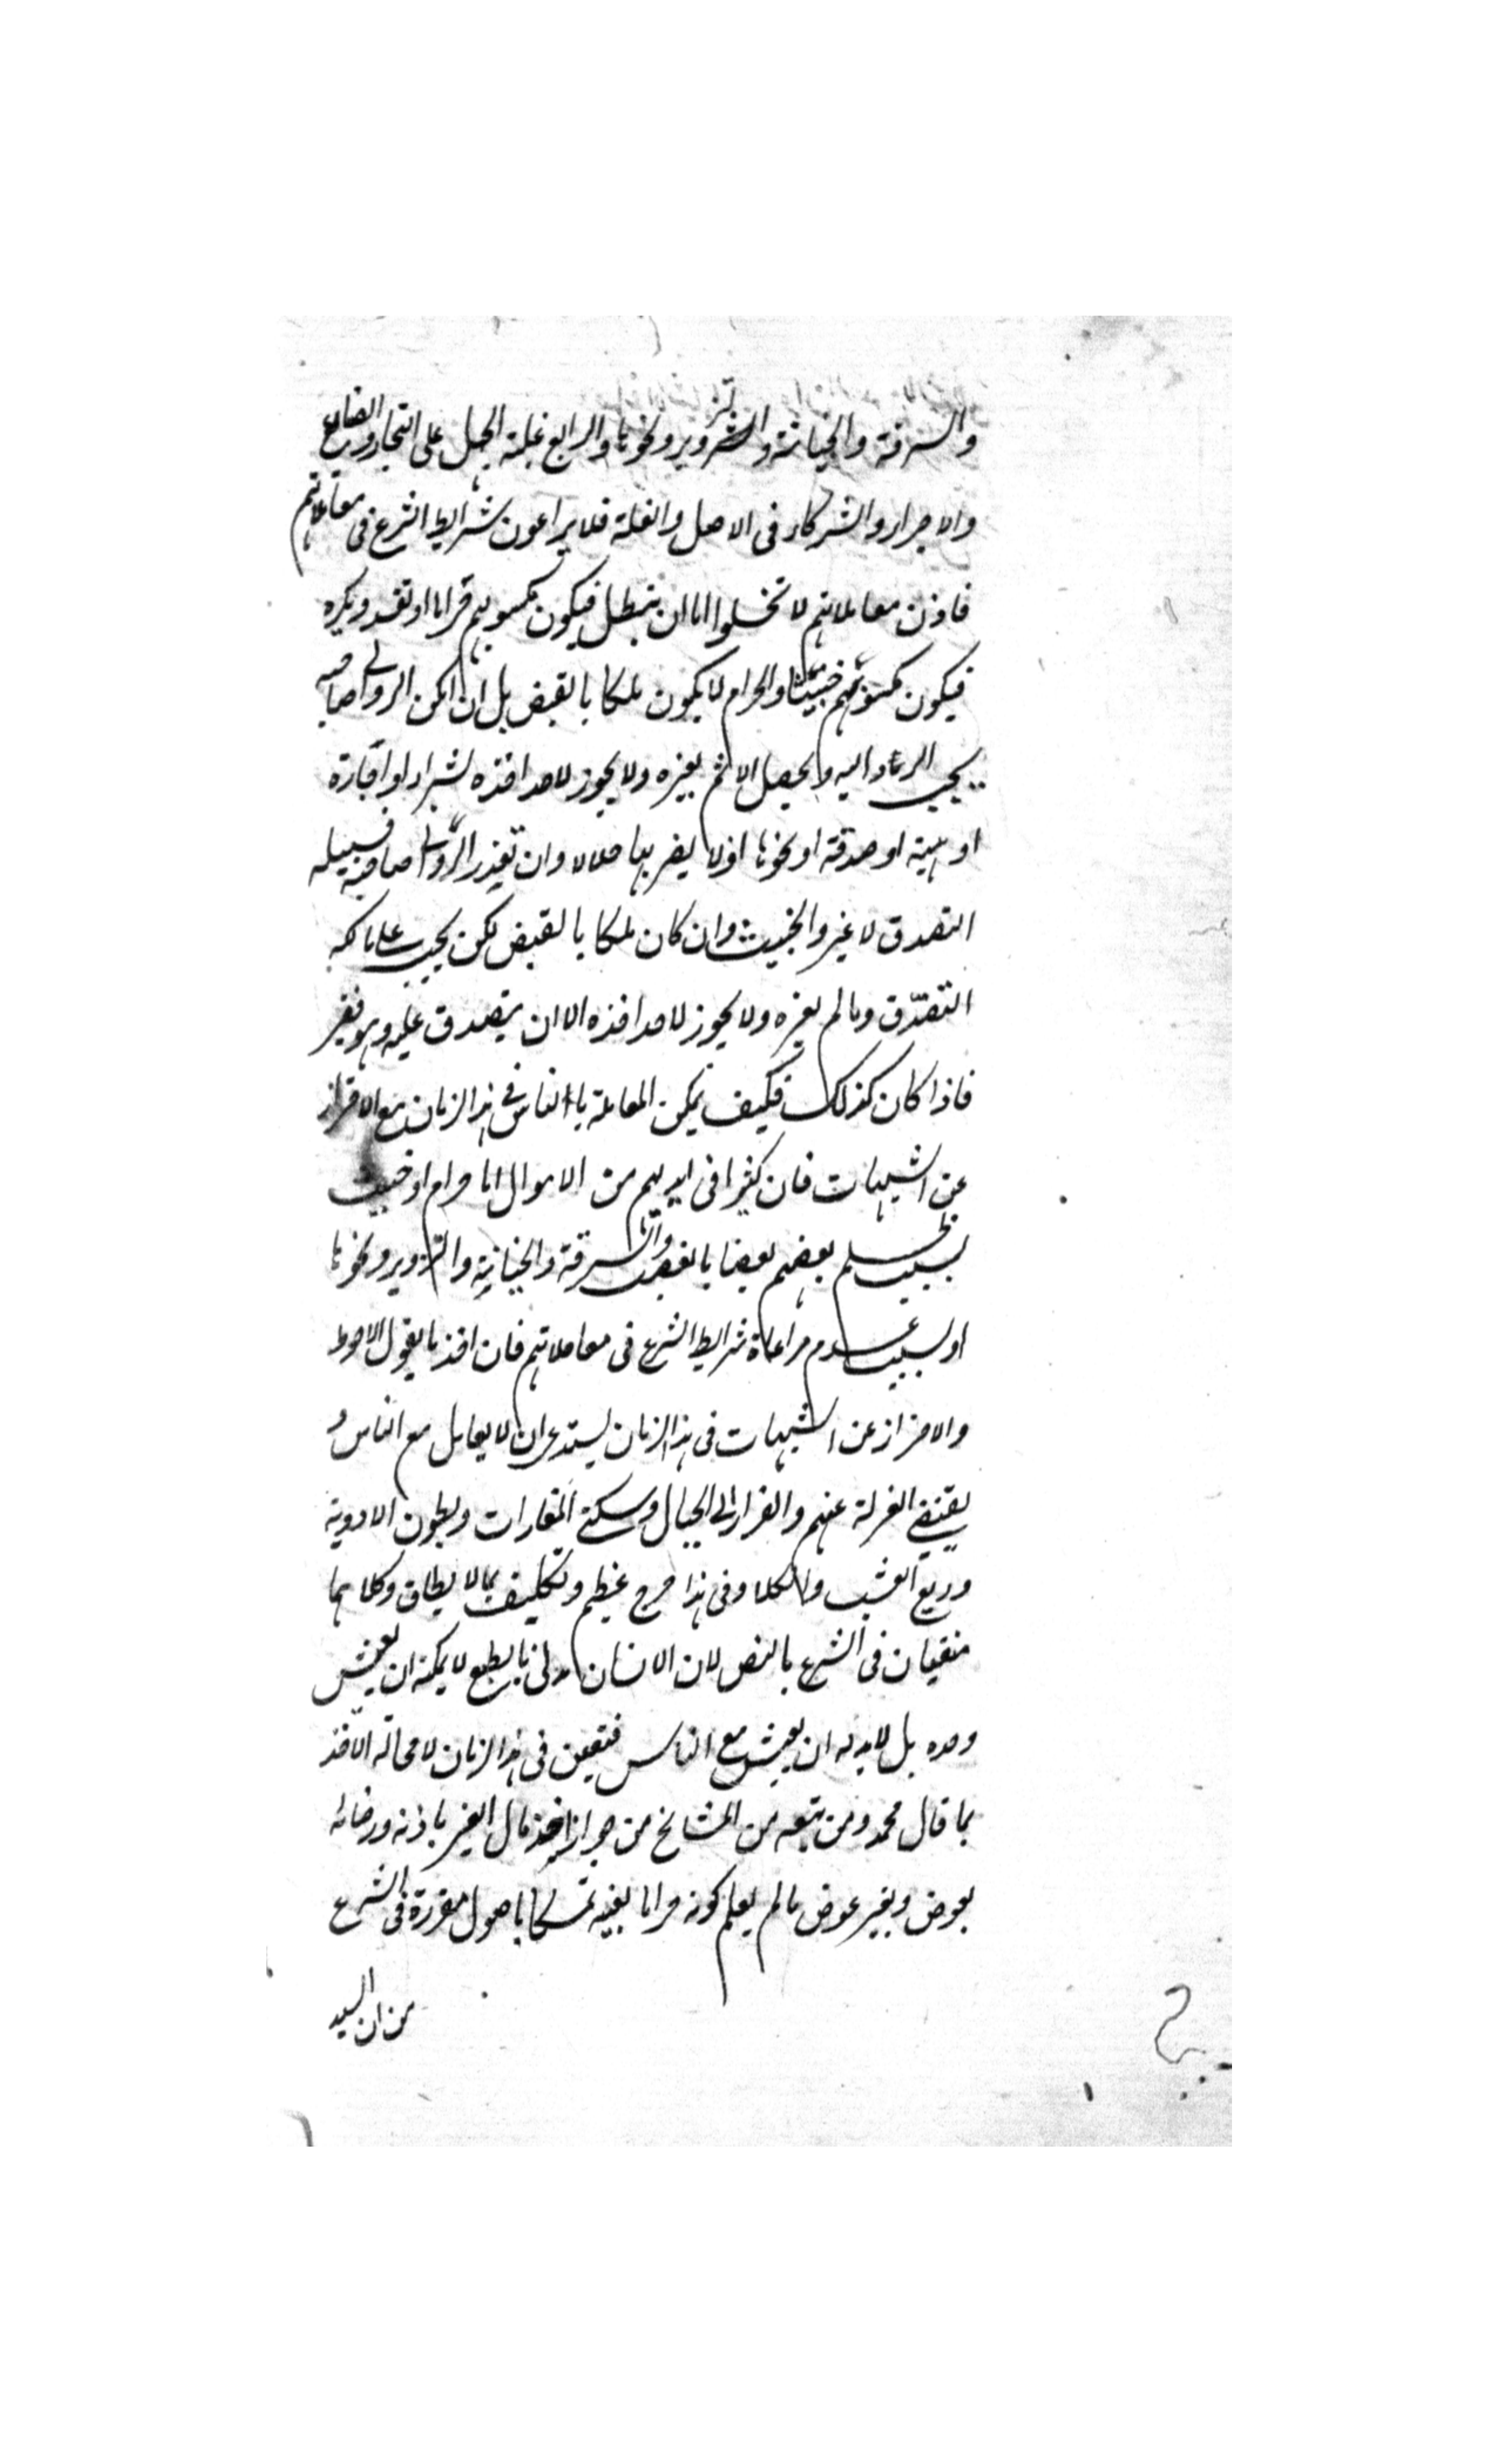 والسرقة والخيانة والتزوير ونحوها والرابع غلبة الجهل على التجار والصناع
والاجراء والشركاء فى الاصل والغلة فلا يراعون شرايط الشرع فى معاملاتهم
فاذن معاملاتهم لا تخلوا اما ان تبطل فيكون مكسوبهم حراما او تفسد ويكره
فيكون مكسوبهم خبيثا والحرام لا يكون ملكا بالقبض بل ان امكن الرد الى صاحبه
يجب الرد اليه ولا يحصل الاثم بغيره ولا يجوز لاحد اخذه لشراء او اجارة
او هبة او صدقة او نحوها اذ لا يصير بها حلالا وان تعذر الرد الى صاحبه فسبيله
التصدق لا غير والخبيث وان كان ملكا بالقبض لكن يجب على مالكه
التصدّق وما لم يغيره ولا يجوز لاحد اخذه الا ان يتصدق عليه وهو فقير
فاذا كان كذلك فكيف يمكن المعاملة بالناس فى هذا الزمان مع الاحتراز
عن الشبهات فان كثيرا فى ايديهم من الاموال اما حرام او خبيث
بسبب ظلم بعضهم بعضا بالغصب والسرقة والخيانة والتزوير ونحوها
او بسبب عدم مراعاة شرايط الشرع فى معاملاتهم فان اخذ بالقول الاحوط
والاحتراز عن الشبهات فى هذا الزمان يستدعى ان لا يعامل مع الناس و
يقتضى العزلة عنهم والفرار الى الجبال وسكنى المغارات وبطون الاودية
وربع العشب والكلاء وفى هذا حرج عظيم وتكليف بما لا يطاق وكلاهما
منفيان فى الشرع بالنص لان الانسان مدنى بالطبع لا يمكنه ان يعيش
وحده بل لابد له ان يعيش مع الناس فتعين فى هذا الزمان لا محالة الاخذ
بما قال محمد ومن تبعه من المشايخ من جواز اخذ مال الغير باذنه ورضائه
بعوض وبغير عوض ما لم يعلم كونه حراما بعينه تمسكا باصول مقررة فى الشرع
من ان اليد